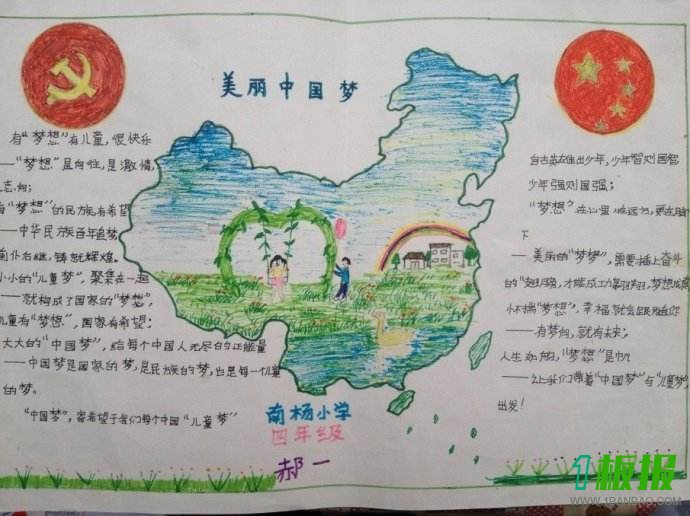 美丽中国梦
有“梦想”有儿童，很快乐
——“梦想”是向往，是激情，
志向；
有“梦想”的民族有希望
——中华民族百年追梦
前仆后继，铸就辉煌。
小小的“儿童梦”，聚集在一起
——就构成了国家的“梦想”，
儿童有“梦想”，国家有希望；
大大的“中国梦”，给每个中国人无尽的正能量
——中国梦是国家的梦，是民族的梦，也是每一个儿童
的梦。
“中国梦”，寄希望于我们每个中国“儿童梦”
自古英雄出少年，少年智则国智
少年强则国强；
“梦想”在心里 在远方，更在脚
下
— 美丽的“梦想”，需要插上奋斗
的“翅膀，才能成功
“梦想”，幸福
——有梦想，就有未来；
人生
——让我们带着“中国梦”与“儿童梦”
出发！
南杨小学
四年级
郝一
1板报
WWW.1BANBAO.COM